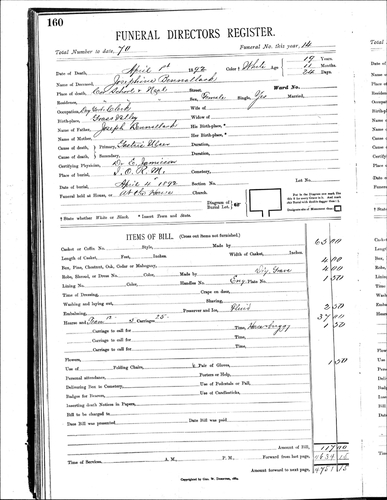 160
FUNERAL DIRECTORS REGISTER.
Total Number to date, 70 Funeral No. this year, 14
Date of Death, April 1st 1892 Color † White Age 19 Years
11 Months
24 Days
Name of Deceased, Josephine Bennallack
Place of Death, Cor School & Neal Street, Ward No.
Residence, Sex, Female Single, Yes Married,
Occupation, Clerk Wife of
Birth-place, Grass Valley Widow of
Name of Father, Joseph Bennallack His Birth-place, *
Name of Mother, Her Birth-place, *
Cause of death, Primary, Duration,
Cause of death, Secondary, Duration,
Certifying Physician, Dr. E. Jamieson
Place of burial, I.O.R.M. Cemetery,
Date of burial, April 4" 1892 Section No. Lot No.
Funeral held at House, or At the House Diagram of Burial Lot,
† State whether White or Black. * Insert Town and State.
ITEMS OF BILL. (Cross out items not furnished.)
Casket or Coffin No. Style, Made by 65 00
Length of Casket, Feet, Inches. Width of Casket, Inches.
Box, Pine, Chestnut, Oak, Cedar or Mahogany, 4 00
Robe, Shroud, or Dress No. Color, Made by 4 00
Lining No. Color, Handles No. Eng. Plate No. 1 50
Time of Dressing, Crape on door,
Washing and laying out, Shaving,
Embalming, Preserver and Ice, Fluid 2 50
Hearse and Team 12 5 Carriages 25 37 00
Carriage to call for Time, 1 50
Carriage to call for Time,
Carriage to call for Time,
Flowers,
Use of Folding Chairs, Pair of Gloves, 1 50
Personal attendance, Porters or Help,
Delivering Box in Cemetery, Use of Pedestals or Pall,
Badges for Bearers, Use of Candlesticks,
Inserting death Notices in Papers,
Bill to be charged to
Date Bill was presented Date Bill was paid
Amount of Bill, 117 00
Forward from last page,
Time of Services, A. M., P. M.
Amount forward to next page,
Copyrighted by Geo. W.